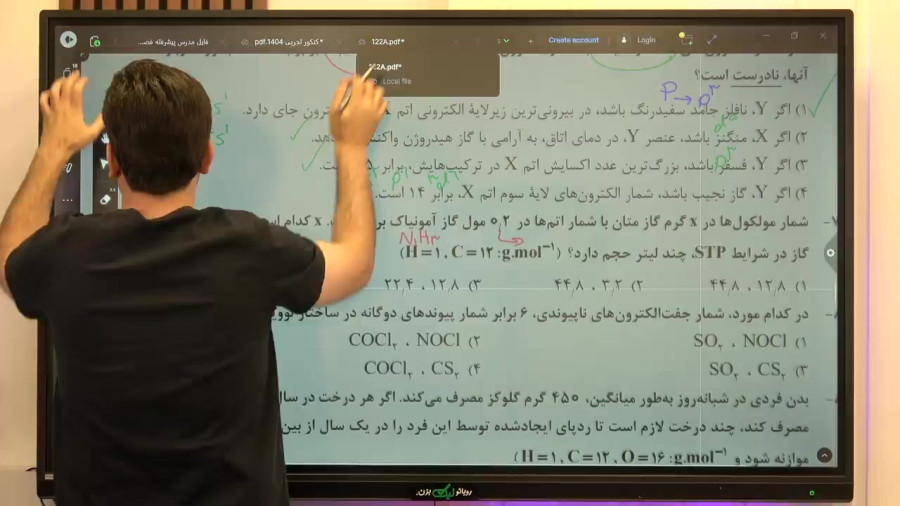 فایل مدرس پیشرفته فصـ... کنکور تجربی 1404.pdf* 122A.pdf* Create account Login
122A.pdf*
Local file
آنها، نادرست است؟
P → p۳
۱) اگر Y، نافلز جامد سفیدرنگ باشد، در بیرونی‌ترین زیرلایهٔ الکترونی اتم X ترون جای دارد.
۲) اگر X، منگنز باشد، عنصر Y، در دمای اتاق، به آرامی با گاز هیدروژن واکنش دهد.
۳) اگر Y، فسفر باشد، بزرگ‌ترین عدد اکسایش اتم X در ترکیب‌هایش، برابر ۵
۴) اگر Y، گاز نجیب باشد، شمار الکترون‌های لایهٔ سوم اتم X، برابر ۱۴ است.
۷- شمار مولکول‌ها در x گرم گاز متان با شمار اتم‌ها در ۰٫۲ مول گاز آمونیاک x کدام
NH۳
گاز در شرایط STP، چند لیتر حجم دارد؟ (H=۱, C=۱۲ :g.mol⁻¹)
۱) ۱۲٫۸ ، ۴۴٫۸ ۲) ۳٫۲ ، ۴۴٫۸ ۳) ۱۲٫۸ ، ۲۲٫۴
۸- در کدام مورد، شمار جفت‌الکترون‌های ناپیوندی، ۶ برابر شمار پیوندهای دوگانه در ساختار
۱) SO₂ ، NOCl ۲) COCl₂ ، NOCl
۳) SO₂ ، CS₂ ۴) COCl₂ ، CS₂
بدن فردی در شبانه‌روز به‌طور میانگین، ۴۵۰ گرم گلوکز مصرف می‌کند. اگر هر درخت در سال
مصرف کند، چند درخت لازم است تا ردپای ایجادشده توسط این فرد را در یک سال از بین
موازنه شود و (H=۱, C=۱۲, O=۱۶ :g.mol⁻¹)
روباتو لیک بزن.